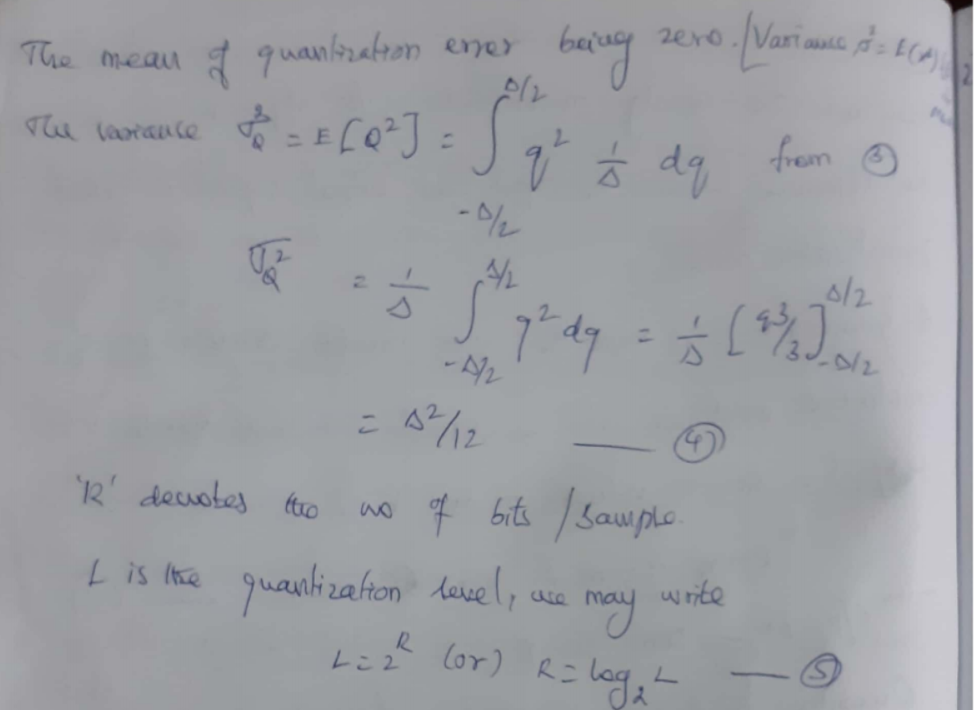 The mean of quantization error being zero. [Variance, σ² = E(
The variance σ_Q² = E[Q²] = ∫_{-Δ/2}^{Δ/2} q² 1/Δ dq from ③
σ_Q² = 1/Δ ∫_{-Δ/2}^{Δ/2} q² dq = 1/Δ [q³/3]_{-Δ/2}^{Δ/2}
= Δ²/12 — ④
'R' denotes the no of bits / sample.
L is the quantization level, we may write
L = 2^R (or) R = log₂ L — ⑤